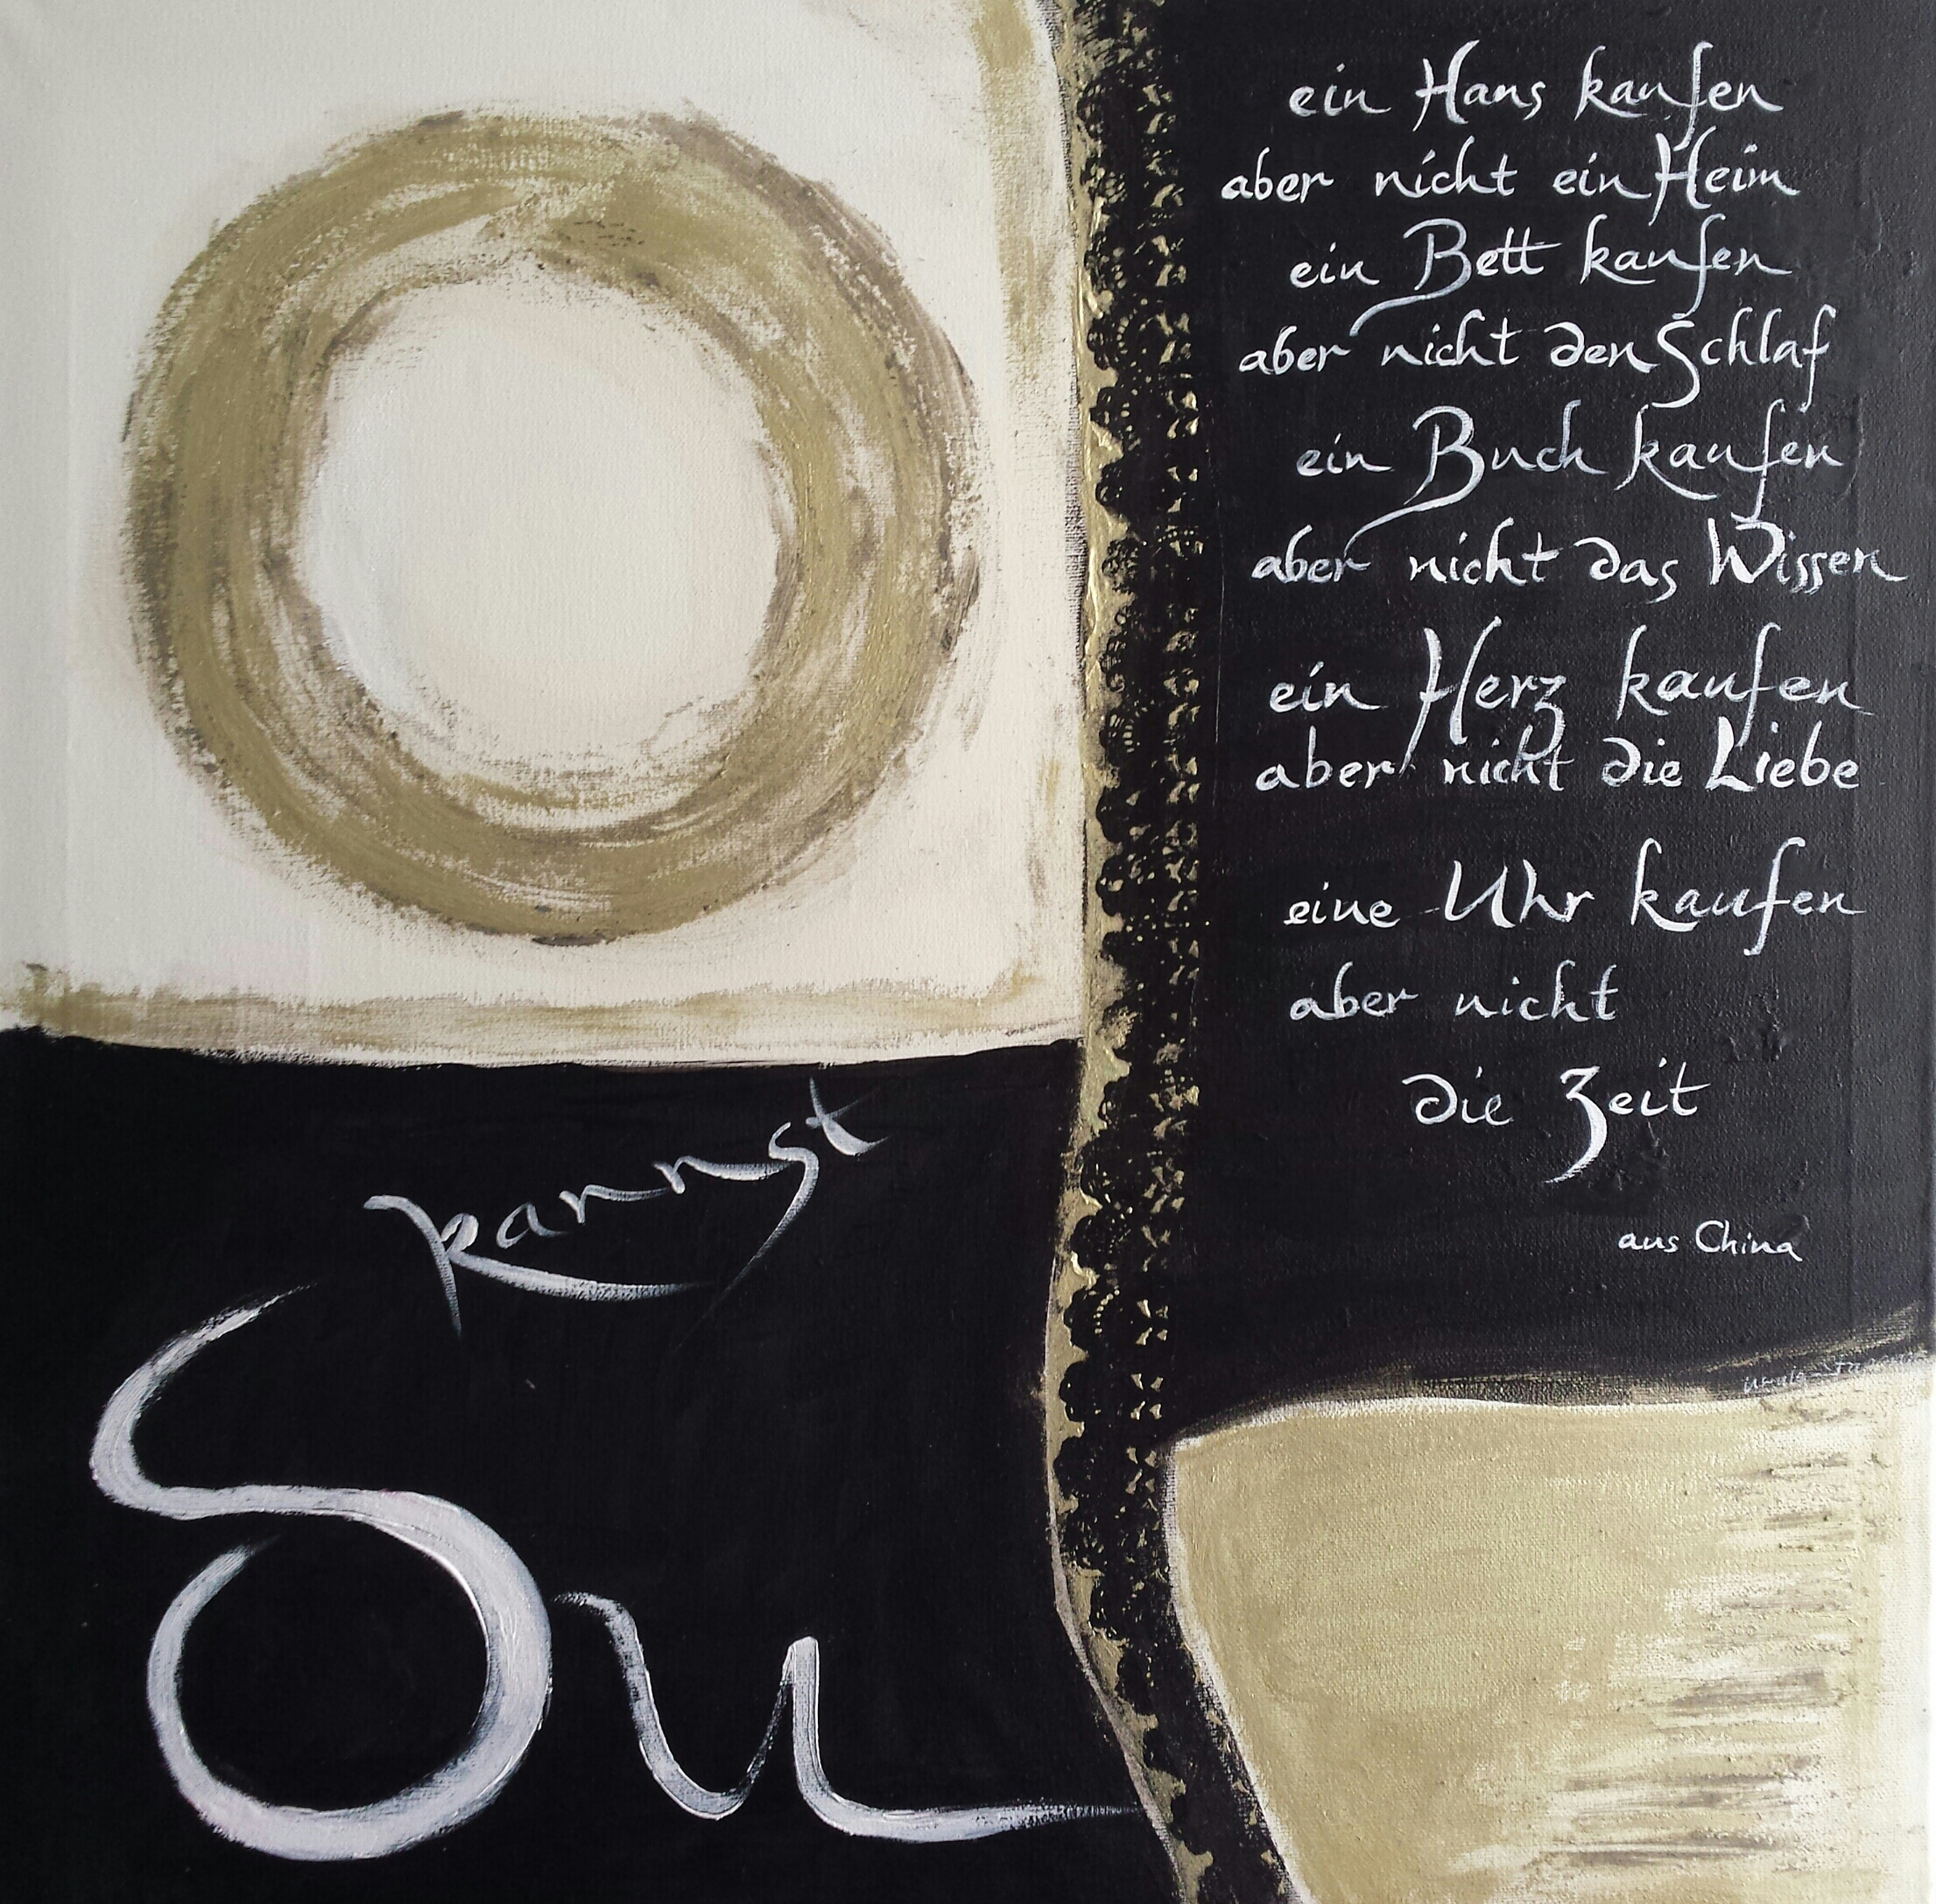 kannst
Du
ein Haus kaufen
aber nicht ein Heim
ein Bett kaufen
aber nicht den Schlaf
ein Buch kaufen
aber nicht das Wissen
ein Herz kaufen
aber nicht die Liebe
eine Uhr kaufen
aber nicht
die Zeit
aus China